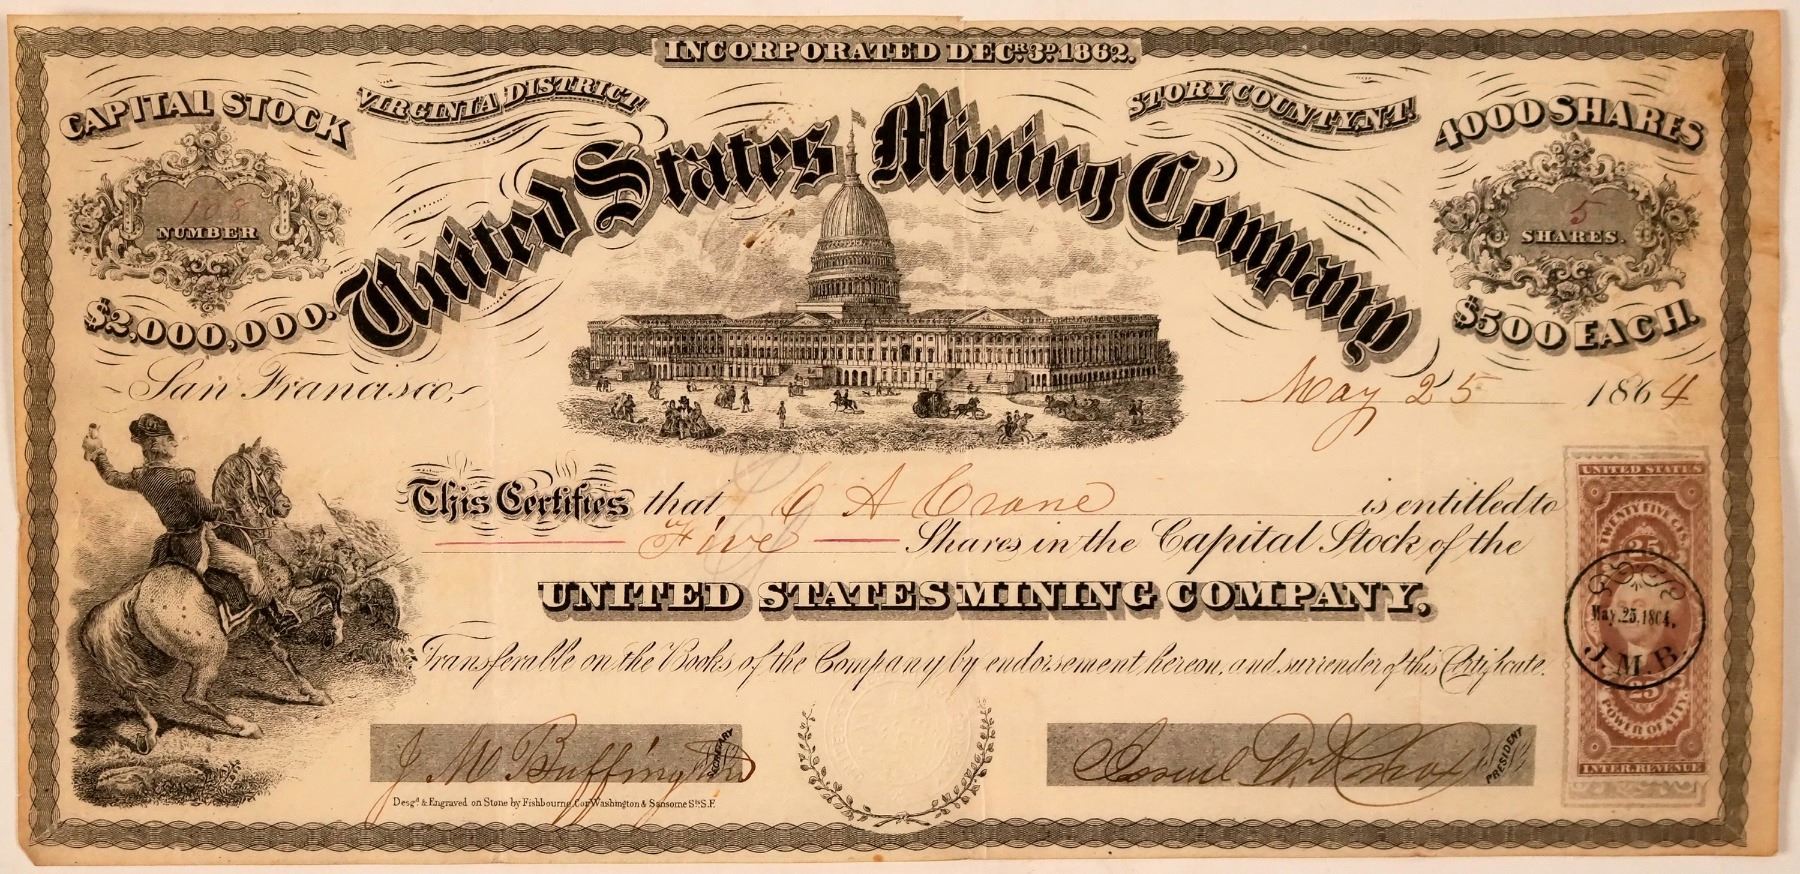 INCORPORATED DECR. 3D. 1862.
CAPITAL STOCK
VIRGINIA DISTRICT
STORY COUNTY, N.T.
4000 SHARES
United States Mining Company
108
NUMBER
5
SHARES.
$2,000,000.
$500 EACH.
San Francisco, May 25 1864
This Certifies that C A Crane is entitled to
Five Shares in the Capital Stock of the
UNITED STATES MINING COMPANY,
Transferable on the Books of the Company by endorsement hereon, and surrender of this Certificate.
J M Buffington
SECRETARY
PRESIDENT
Desgd. & Engraved on Stone by Fishbourne, Cor Washington & Sansome Sts S.F.
UNITED STATES
TWENTY FIVE CTS.
25
May. 25. 1864.
J. M. B.
25
POWER OF AT'Y.
INTER. REVENUE